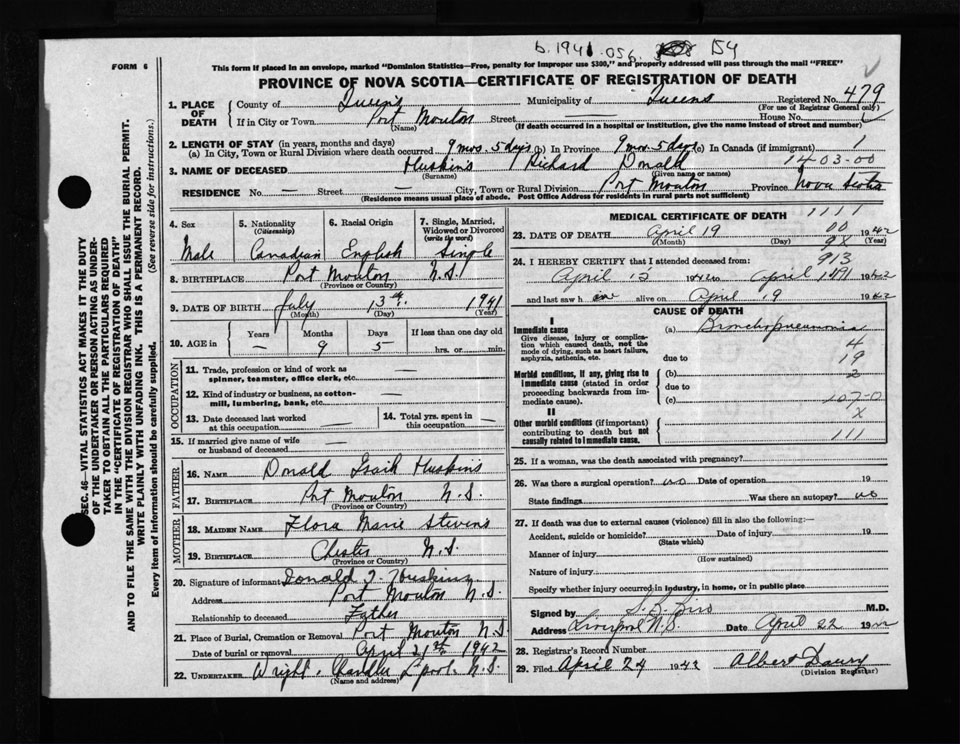 b. 1941-056. 154
FORM 6
This form if placed in an envelope, marked "Dominion Statistics—Free, penalty for improper use $300," and properly addressed will pass through the mail "FREE"
PROVINCE OF NOVA SCOTIA—CERTIFICATE OF REGISTRATION OF DEATH
1. PLACE OF DEATH
County of Queens Municipality of Queens Registered No. 479
(For use of Registrar General only)
If in City or Town Port Mouton Street House No.
(Name) (If death occurred in a hospital or institution, give the name instead of street and number)
2. LENGTH OF STAY (in years, months and days)
(a) In City, Town or Rural Division where death occurred 9 mos. 5 days (b) In Province 9 mos. 5 days (c) In Canada (if immigrant) 1
3. NAME OF DECEASED Huskins Richard Donald 1403-00
(Surname) (Given name or names)
RESIDENCE No. — Street — City, Town or Rural Division Port Mouton Province Nova Scotia
(Residence means usual place of abode. Post Office Address for residents in rural parts not sufficient)
SEC. 46—VITAL STATISTICS ACT MAKES IT THE DUTY
OF THE UNDERTAKER OR PERSON ACTING AS UNDER-
TAKER TO OBTAIN ALL THE PARTICULARS REQUIRED
IN THE "CERTIFICATE OF REGISTRATION OF DEATH"
AND TO FILE THE SAME WITH THE DIVISION REGISTRAR WHO SHALL ISSUE THE BURIAL PERMIT.
WRITE PLAINLY WITH UNFADING INK. THIS IS A PERMANENT RECORD.
Every item of information should be carefully supplied. (See reverse side for instructions.)
4. Sex 5. Nationality (Citizenship) 6. Racial Origin 7. Single, Married, Widowed or Divorced (write the word)
Male Canadian English Single
8. BIRTHPLACE Port Mouton N.S.
(Province or Country)
9. DATE OF BIRTH July 13th. 1941
(Month) (Day) (Year)
10. AGE in Years Months Days If less than one day old
— 9 5 hrs. or min.
OCCUPATION
11. Trade, profession or kind of work as
spinner, teamster, office clerk, etc. —
12. Kind of industry or business, as cotton-
mill, lumbering, bank, etc. —
13. Date deceased last worked
at this occupation —
14. Total yrs. spent in
this occupation —
15. If married give name of wife
or husband of deceased —
FATHER
16. NAME Donald Isaih Huskins
17. BIRTHPLACE Port Mouton N.S.
(Province or Country)
MOTHER
18. MAIDEN NAME Flora Marie Stevens
19. BIRTHPLACE Chester N.S.
(Province or Country)
20. Signature of informant Donald I. Huskins
Address Port Mouton N.S.
Relationship to deceased Father
21. Place of Burial, Cremation or Removal Port Mouton N.S.
Date of burial or removal April 21st 1942
22. UNDERTAKER Wright. Chandler L'pool. N.S.
(Name and address)
MEDICAL CERTIFICATE OF DEATH 1111
23. DATE OF DEATH April 19 00 1942
(Month) (Day) 9X (Year)
24. I HEREBY CERTIFY that I attended deceased from: 913
April 15 1942 to April 1491942
and last saw h alive on April 9 1942
CAUSE OF DEATH
I
Immediate cause (a) Bronchopneumonia
Give disease, injury or complica-
tion which caused death, not the
mode of dying, such as heart failure,
asphyxia, asthenia, etc.
4
due to 19
Morbid conditions, if any, giving rise to
immediate cause (stated in order
proceeding backwards from im-
mediate cause).
(b) 2
due to
(c) 107-0
II X
Other morbid conditions (if important)
contributing to death but not
causally related to immediate cause. 111
25. If a woman, was the death associated with pregnancy?
26. Was there a surgical operation? no Date of operation 19
State findings Was there an autopsy? no
27. If death was due to external causes (violence) fill in also the following:—
Accident, suicide or homicide? Date of injury 19
(State which)
Manner of injury
(How sustained)
Nature of injury
Specify whether injury occurred in industry, in home, or in public place
Signed by M.D.
Address Liverpool N.S. Date April 22 1942
28. Registrar's Record Number
29. Filed April 24 1942 Albert Daury
(Division Registrar)